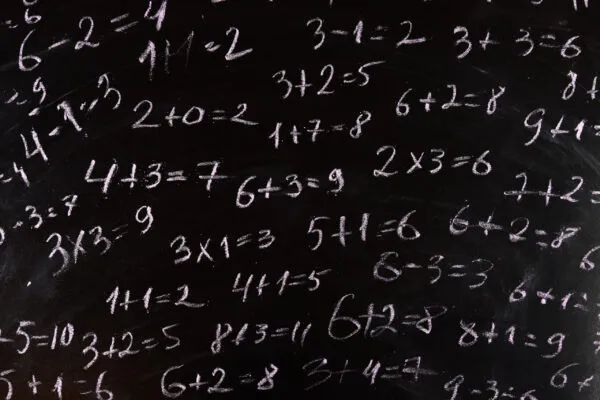 6-2=4
1+1=2
3-1=2
3+3=6
3+2=5
6+2=8
8+
4-1=3
2+0=2
1+7=8
9+1=
4+3=7
6+3=9
2×3=6
2+2=
-3=7
3×3=9
3×1=3
5+1=6
6+2=8
6-3=3
1+1=2
4+1=5
6+1=
-5=10
3+2=5
8+3=11
6+2=8
8+1=9
5+1=6
6+2=8
3+4=7
9-3=6
6+